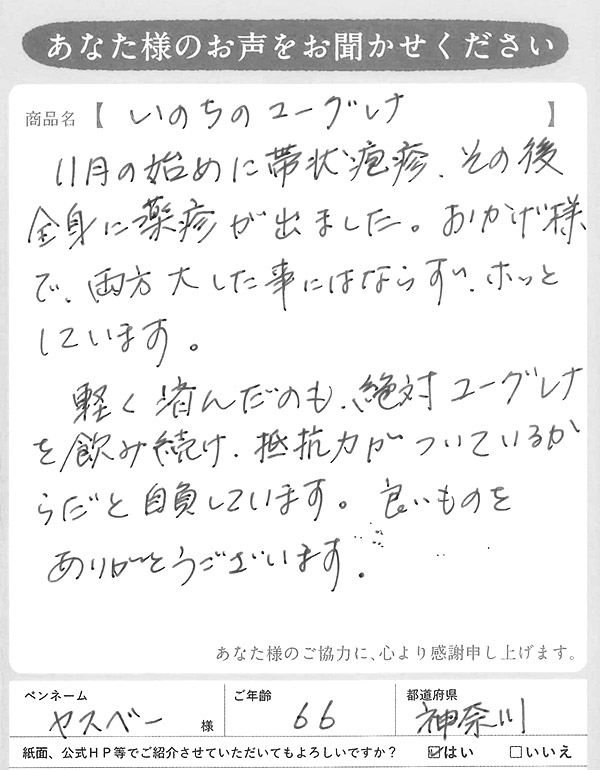 あなた様のお声をお聞かせください
商品名【いのちのユーグレナ】
11月の始めに帯状疱疹、その後
全身に薬疹が出ました。おかげ様
で、両方大した事にはならずい、ホッと
しています。
軽く済んだのも、絶対ユーグレナ
を飲み続け、抵抗力がついているか
らだと自負しています。良いものを
ありがとうございます。
あなた様のご協力に、心より感謝申し上げます。
ペンネーム ご年齢 都道府県
ヤスベー 様 66 神奈川
紙面、公式HP等でご紹介させていただいてもよろしいですか? ☑はい □いいえ